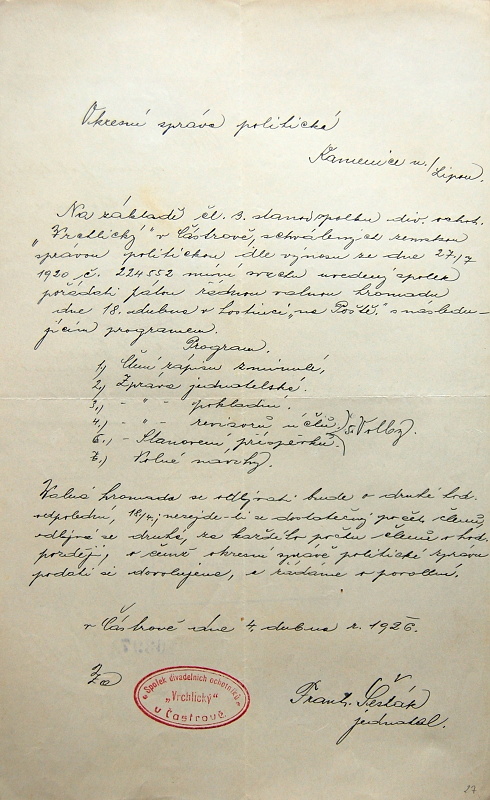 Okresní správa politická
Kamenice n./Lipou.
Na základě čl. 3. stanov spolku div. ochot.
„Vrchlický" v Částrově, schválených zemskou
správou politickou dle výnosu ze dne 27./7
1920 č. 224552 míní svrchu uvedený spolek
pořádati pátou řádnou valnou hromadu
dne 18. dubna v hostinci „na Poště." s následu-
jícím programem.
Program.
1., Čtení zápisu z minulé,
2., Zpráva jednatelské.
3., - " - pokladní.
4., - " - revisorů účtů, 5. Volby.
6., - Stanovení příspěvků
7., Volné návrhy.
Valná hromada se odbývati bude o druhé hod.
odpolední, 18/4, nesejde-li se dostatečný počet členů,
odbývá se druhá, za každého počtu členů o hod.
později, o čemž okresní správě politické zprávu
podati si dovolujeme, a žádáme o povolení.
v Částrově dne 4. dubna r. 1926.
Za
Spolek divadelních ochotníků
„Vrchlický"
v Částrově
Frant. Šesták
jednatel.
27